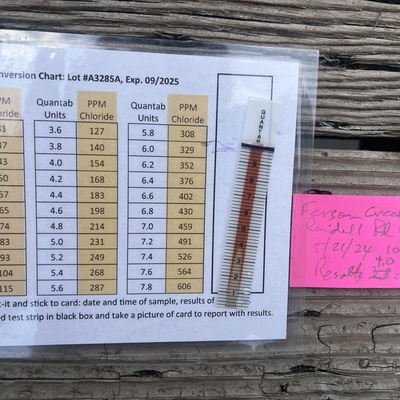 nversion Chart: Lot #A3285A, Exp. 09/2025
PPM Quantab PPM Quantab PPM
Chloride Units Chloride Units Chloride
31 3.6 127 5.8 308
37 3.8 140 6.0 329
43 4.0 154 6.2 352
50 4.2 168 6.4 376
57 4.4 183 6.6 402
65 4.6 198 6.8 430
74 4.8 214 7.0 459
83 5.0 231 7.2 491
93 5.2 249 7.4 526
104 5.4 268 7.6 564
115 5.6 287 7.8 606
t-it and stick to card: date and time of sample, results of
ed test strip in black box and take a picture of card to report with results.
QUANTAB
Ferson Creek
Rd
5/21/24 10
4.0
Results